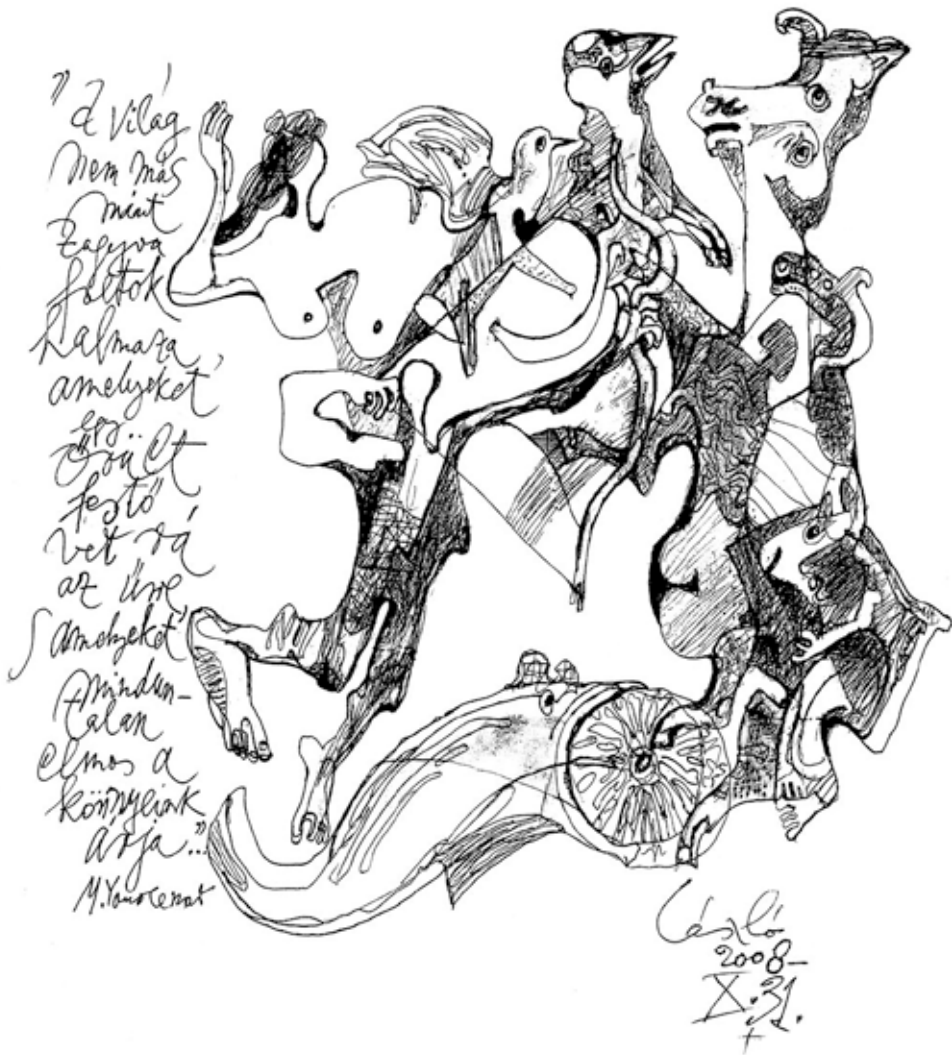 "A világ
nem más
mint
zagyva
foltok
halmaza,
amelyeket
egy..
őrült
festő
vet rá
az űrre
s amelyeket
mindun-
talan
elmos a
könnyeink
árja..."
M. Yourcenar
László
2008-
X.31.
+